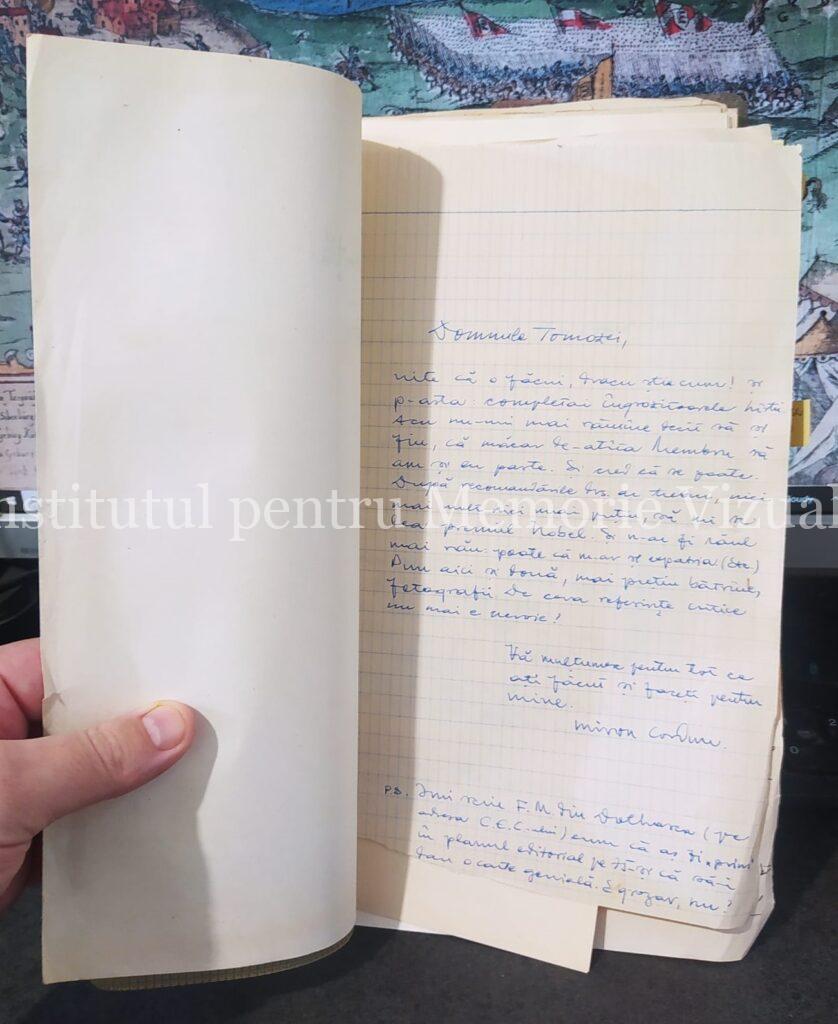 Domnule Tomozei,
uite că o făcui, dracu știe cum! și
p-asta: completai îngrozitoarele
Acu nu-mi mai rămîne decît să
fiu, că măcar de-atîta să
am și eu parte. Și cred că se poate.
După recomandările nici
mai mult nici mai puțin, să mi se
dea premiul Nobel. Și n-ar fi răul
mai rău: poate că m-ar și expatria (etc.)
Pun aici și două, mai puțin bătrîne,
fotografii. De ceva referințe critice
nu mai e nevoie!
Vă mulțumesc pentru tot ce
ați făcut și faceți pentru
mine.
Miron Cordun.
P.S. Îmi scrie F.M. din Dolhasca (pe
adresa C.E.C.-ului) cum că aș fi
în planul editorial pe 75 și că să-i
dau o carte genială. E grozav, nu?
Institutul pentru Memorie Vizuală